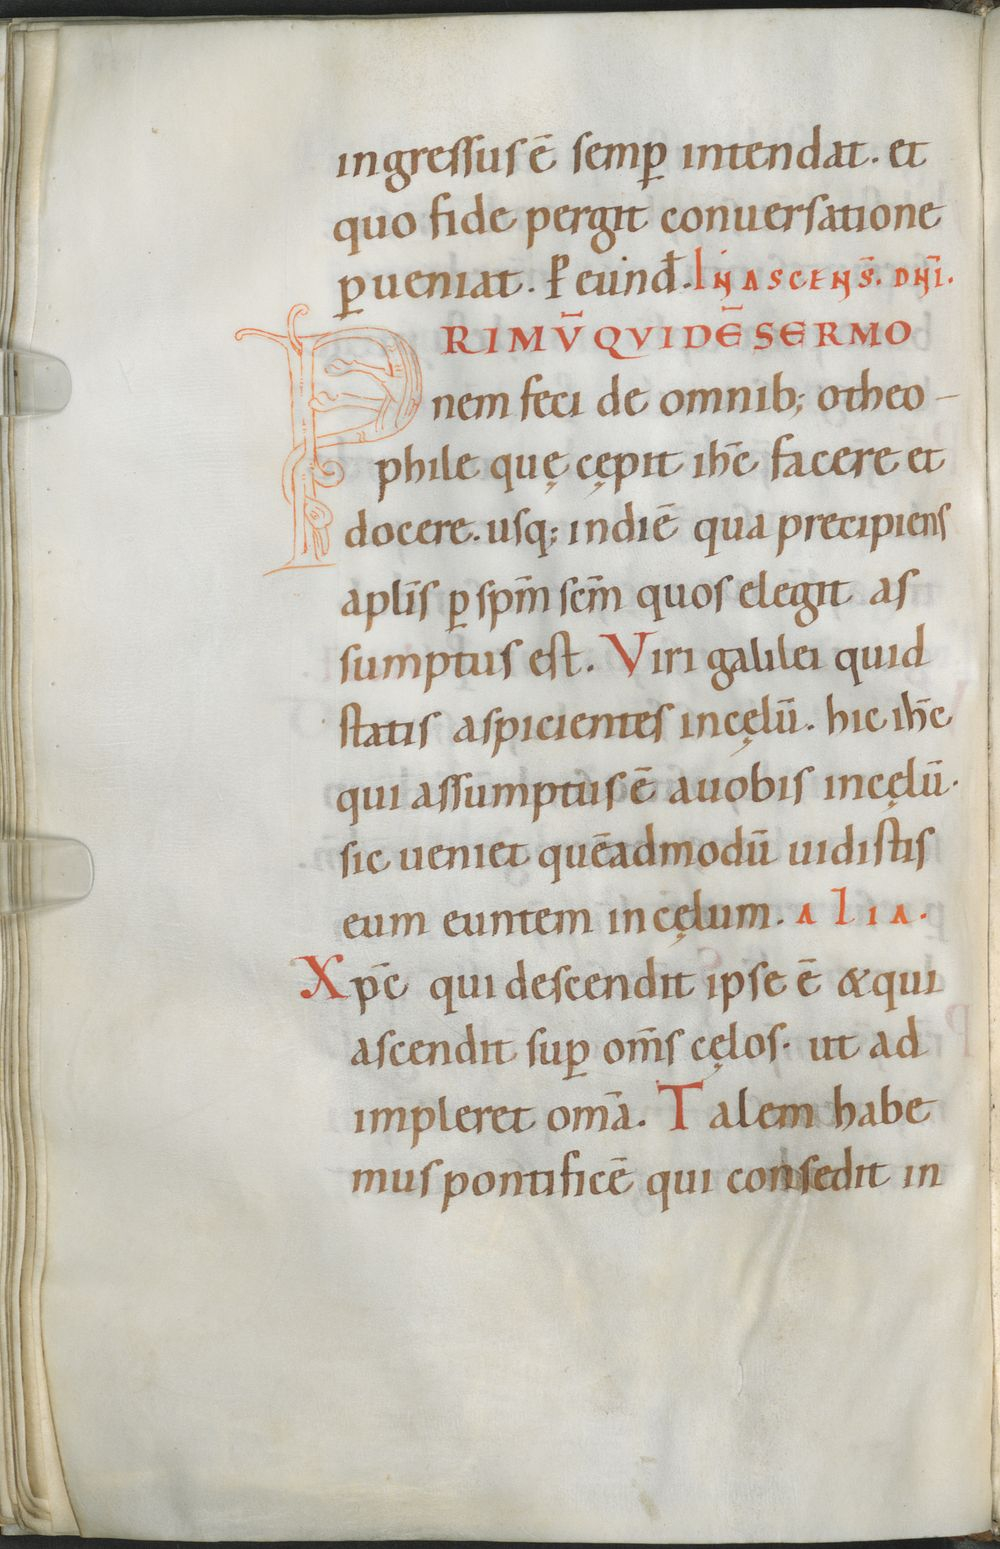 ingressus ē semꝑ intendat. et
quo fide pergit conuersatione
ꝑueniat. P̄ eund̄. IN ASCENS̄. DN̄I.
PRIMV̄ QVIDĒ SERMO
nem feci de omnib; otheo-
phile quę cępit ih̄c facere et
docere. usq; indiē qua precipiens
apl̄is ꝑ sp̄m sc̄m quos elegit as
sumptus est. Viri galilei quid
statis aspicientes incęlū. hic ih̄c
qui assumptus ē auobis incęlū.
sic ueniet quēadmodū uidistis
eum euntem incęlum. ALIA.
Xp̄c qui descendit ipse ē & qui
ascendit suꝑ om̄s cęlos. ut ad
impleret om̄a. Talem habe
mus pontificē qui consedit in